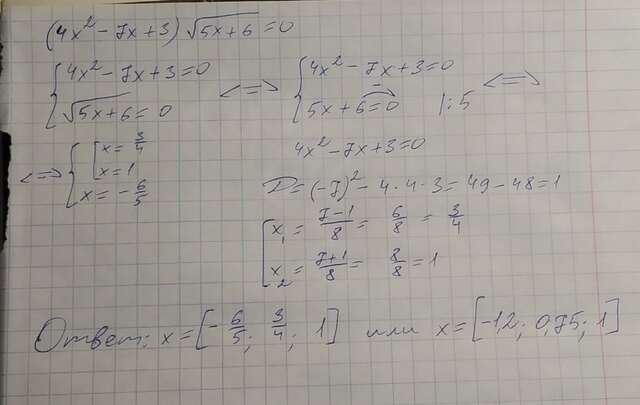 (4x² - 7x + 3) √(5x + 6) = 0
{ 4x² - 7x + 3 = 0 <=> { 4x² - 7x + 3 = 0 <=>
√(5x + 6) = 0 5x + 6 = 0 |:5
<=> { [ x = 3/4 4x² - 7x + 3 = 0
x = 1
x = -6/5 D = (-7)² - 4·4·3 = 49 - 48 = 1
[ x₁ = (7-1)/8 = 6/8 = 3/4
x₂ = (7+1)/8 = 8/8 = 1
Ответ: x = [-6/5; 3/4; 1] или x = [-1,2; 0,75; 1]